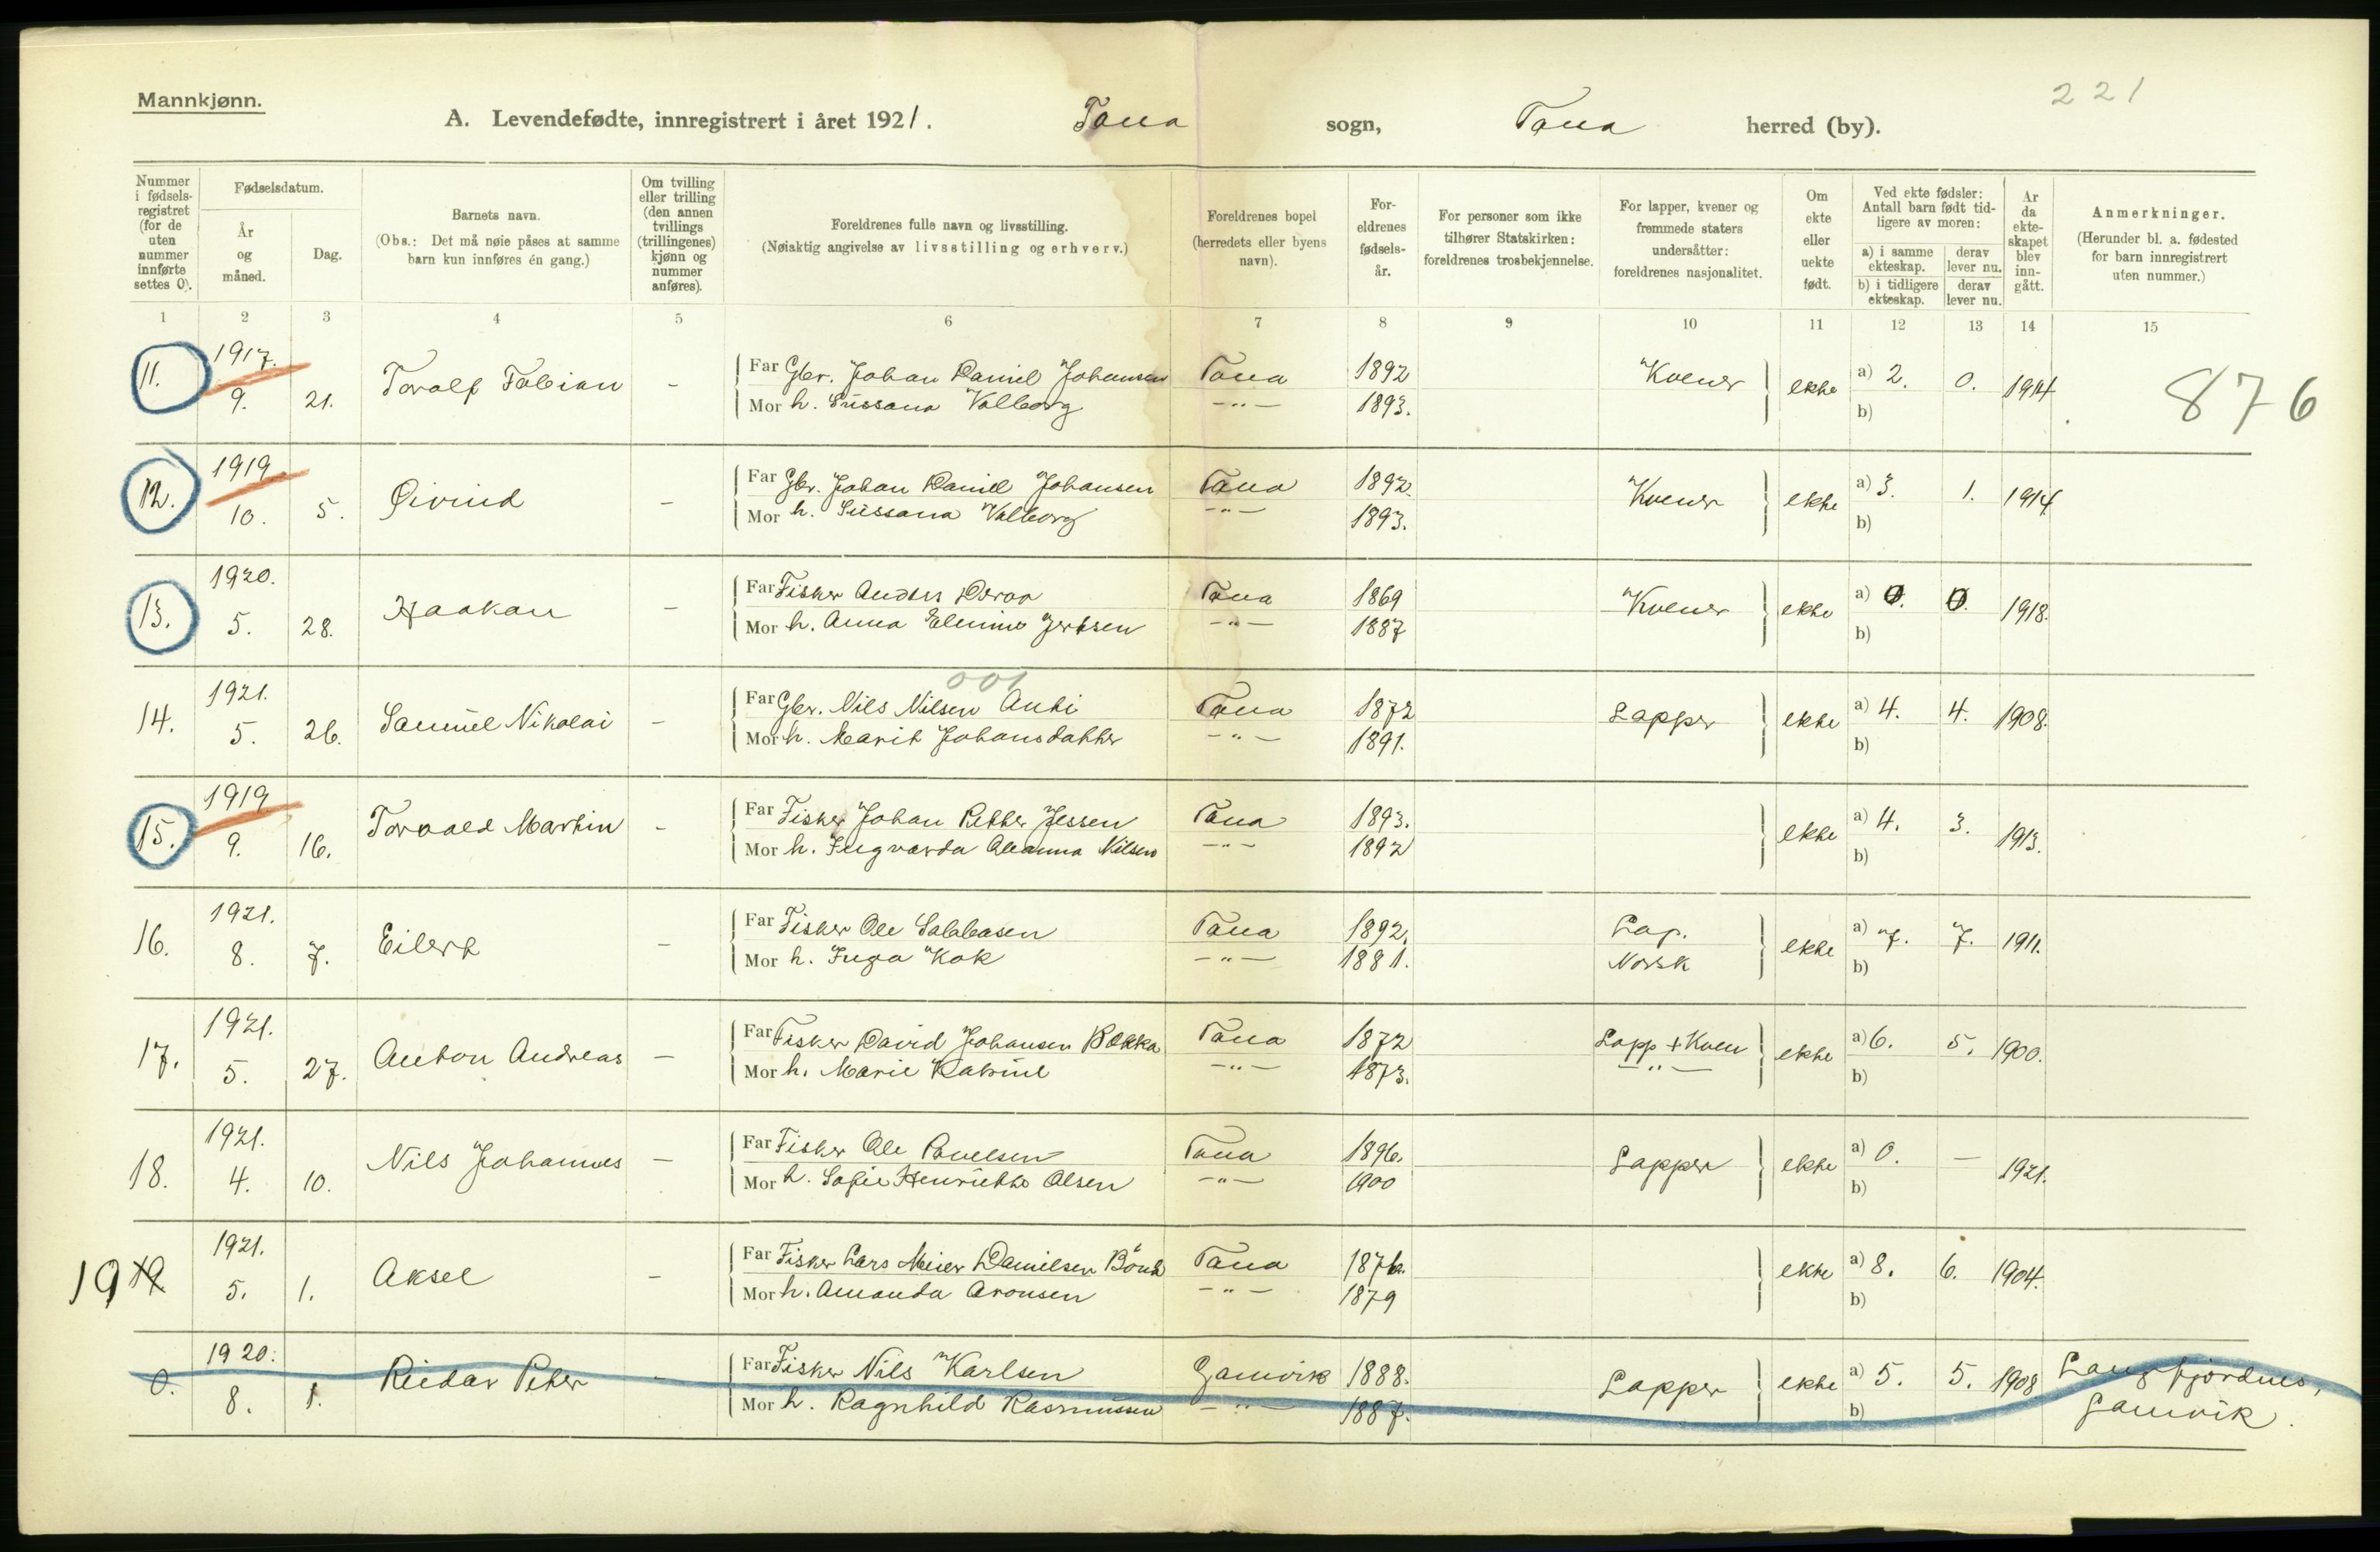 Mannkjønn.
221
A. Levendefødte, innregistrert i året 1921. Tana sogn, Tana herred (by).
Nummer i fødsels-registret (for de uten nummer innførte settes 0).
Fødselsdatum.
År og måned.
Dag.
Barnets navn.
(Obs.: Det må nøie påses at samme barn kun innføres én gang.)
Om tvilling eller trilling (den annen tvillings (trillingenes) kjønn og nummer anføres).
Foreldrenes fulle navn og livsstilling.
(Nøiaktig angivelse av livsstilling og erhverv.)
Foreldrenes bopel (herredets eller byens navn).
For-eldrenes fødsels-år.
For personer som ikke tilhører Statskirken: foreldrenes trosbekjennelse.
For lapper, kvener og fremmede staters undersåtter: foreldrenes nasjonalitet.
Om ekte eller uekte født.
Ved ekte fødsler: Antall barn født tid-ligere av moren:
a) i samme ekteskap.
derav lever nu.
b) i tidligere ekteskap.
derav lever nu.
År da ekte-skapet blev inn-gått.
Anmerkninger.
(Herunder bl. a. fødested for barn innregistrert uten nummer.)
1 2 3 4 5 6 7 8 9 10 11 12 13 14 15
11. 1917. 9. 21. Torolf Fabian - Far Gbr. Johan Daniel Johansen Tana 1892 Kvener ekte a) 2. 0. 1914 876
Mor h. Sussana Valborg -"- 1893. b)
12. 1919 10. 5. Øivind - Far Gbr. Johan Daniel Johansen Tana 1892. Kvener ekte a) 3. 1. 1914
Mor h. Sussana Valborg -"- 1893. b)
13. 1920. 5. 28. Haakan - Far Fisker Anders Tana 1869 Kvener ekte a) 0. 0. 1918.
Mor h. Anna -"- 1887 b)
001
14. 1921. 5. 26. Samuel Nikolai - Far Gbr. Nils Nilsen Anti Tana 1872 Lapper ekte a) 4. 4. 1908.
Mor h. Marit Johansdatter -"- 1891. b)
15. 1919 9. 16. Torvald Martin - Far Fisker Johan Petter Jessen Tana 1893. ekte a) 4. 3. 1913.
Mor h. Ingvarda Nilsen -"- 1892 b)
16. 1921. 8. 7. Eilert - Far Fisker Ole Salabasen Tana 1892. Lap. ekte a) 7. 7. 1911.
Mor h. Inga Kok -"- 1881. Norsk b)
17. 1921. 5. 27. Anton Andreas - Far Fisker David Johansen Bokka Tana 1872 Lapp + Kven ekte a) 6. 5. 1900.
Mor h. Marie Katrine -"- 1873. -"- b)
18. 1921. 4. 10. Nils Johannes - Far Fisker Ole Pauelsen Tana 1896. Lapper ekte a) 0. - 1921.
Mor h. Sofie Henriette Olsen -"- 1900 b)
19 1921. 5. 1. Aksel - Far Fisker Lars Meier Danielsen Tana 1876. ekte a) 8. 6. 1904.
Mor h. Amanda Aronsen -"- 1879 b)
0. 1920. 8. 1. Reidar Peter - Far Fisker Nils Karlsen Gamvik 1888. Lapper ekte a) 5. 5. 1908 Langfjordnes,
Mor h. Ragnhild Rasmussen -"- 1887. b) Gamvik.